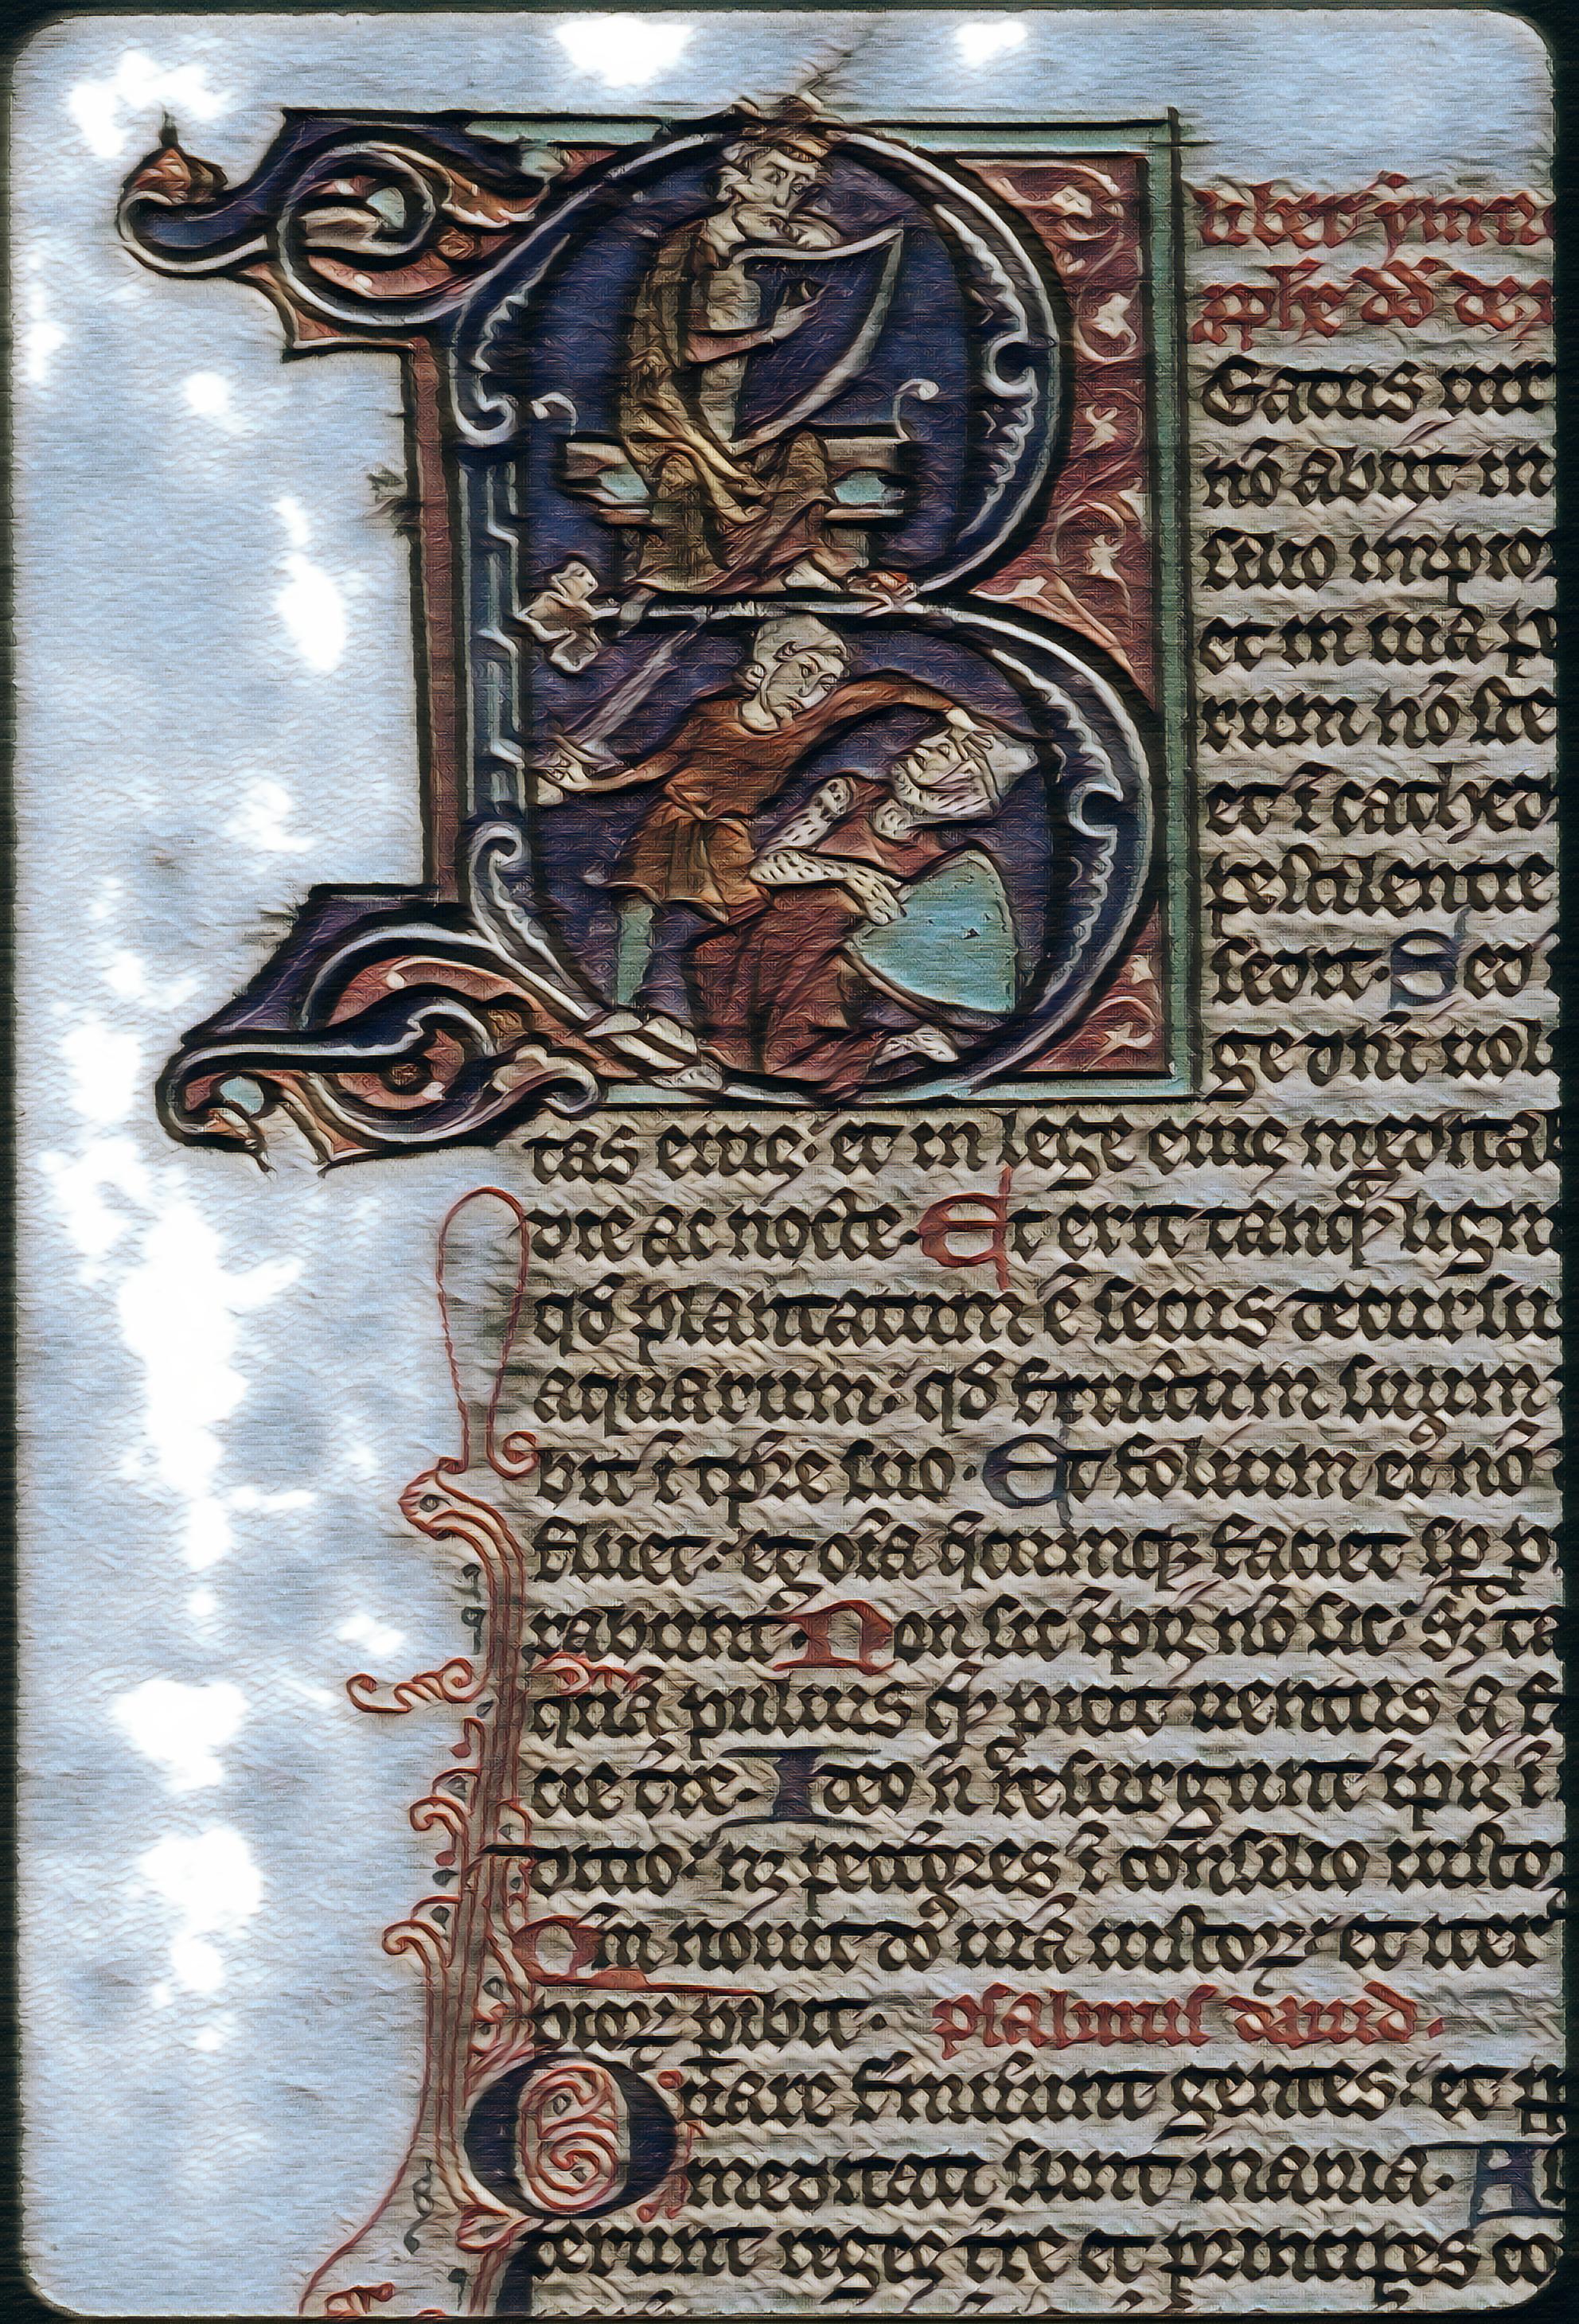 liber ymn
pħe dd de
Eatus uir
nō abiit in
silio impio
et in uia p
rum nō ste
et ī cathed
pestilentie
sedit. Sed
ge dn̄i uol
tas eiuc. et in lege eiuc medita
die ac nocte. Et erit tanq̄ lign
qđ plantatum ē secus decursu
aquarum. qđ fructum suum
bit ī tp̄re suo. Et folium eiꝰ nō
fluet. et oīa q̄cumqꝫ faciet
rabunt. Non sic īpii nō sic. sꝫ ta
quā puluis quē proicit uentus a f
cie tr̄e. Ideo n̄ resurgunt īpii ī
dicio. nꝫ pctōres ī consilio iusto
Qm̄ nouit dn̄s uiā iustoꝝ. et iter
pioꝝ pibit. psalmus dauid.
Quare fremuerunt gentes. et
meditati sunt inania. A
terunt reges tr̄e et principes co